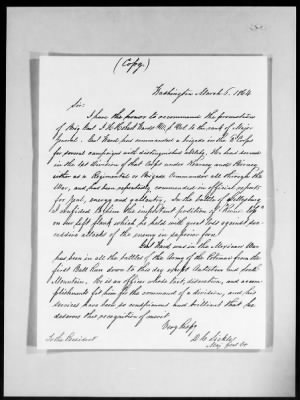 (Copy.)
Washington March 5, 1864
Sir:
I have the honor to recommend the promotion
of Brig Genl J. H. Hobart Ward U.S. Vols to the rank of Major
General. Genl Ward has commanded a brigade in the 3d Corps
for several campaigns with distinguished ability. He has served
in the 1st Division of that Corps under Kearny and Birney
either as a Regimental or Brigade Commander all through the
War, and has been repeatedly commended in official reports
for zeal, energy and gallantry. In the battle of Gettysburg
I confided to him the important position of
on our left flank which he held with great loss against suc-
cessive attacks of the enemy in superior force.
Genl Ward was in the Mexican War
has been in all the battles of the Army of the Potomac from the
first Bull Run down to this day except Antietam and South
Mountain. He is an officer whose tact, discretion, and accom-
plishments fit him to the command of a division, and, his
services have been so conspicuous and brilliant that he
deserves this recognition of merit.
Very Respy
D. E. Sickles
Maj Genl
To the President